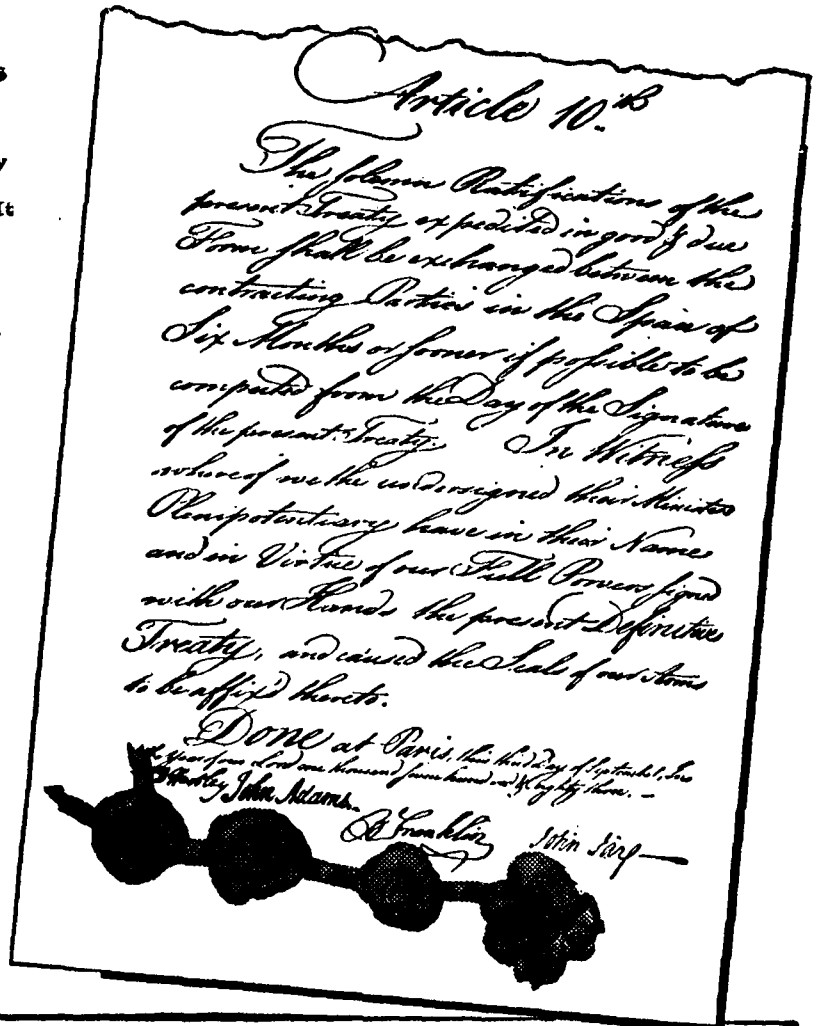 Article 10.th
The solemn Ratifications of the
present Treaty expedited in good & due
Form shall be exchanged between the
contracting Parties in the Space of
Six Months or sooner if possible to be
computed from the Day of the Signature
of the present Treaty. In Witness
whereof we the undersigned their Ministers
Plenipotentiary have in their Name
and in Virtue of our Full Powers signed
with our Hands the present Definitive
Treaty, and caused the Seals of our Arms
to be affix'd thereto.
Done at Paris, this third Day of September, In the
Year of our Lord one thousand seven hundred & eighty three. –
D Hartley John Adams. B Franklin John Jay –
It